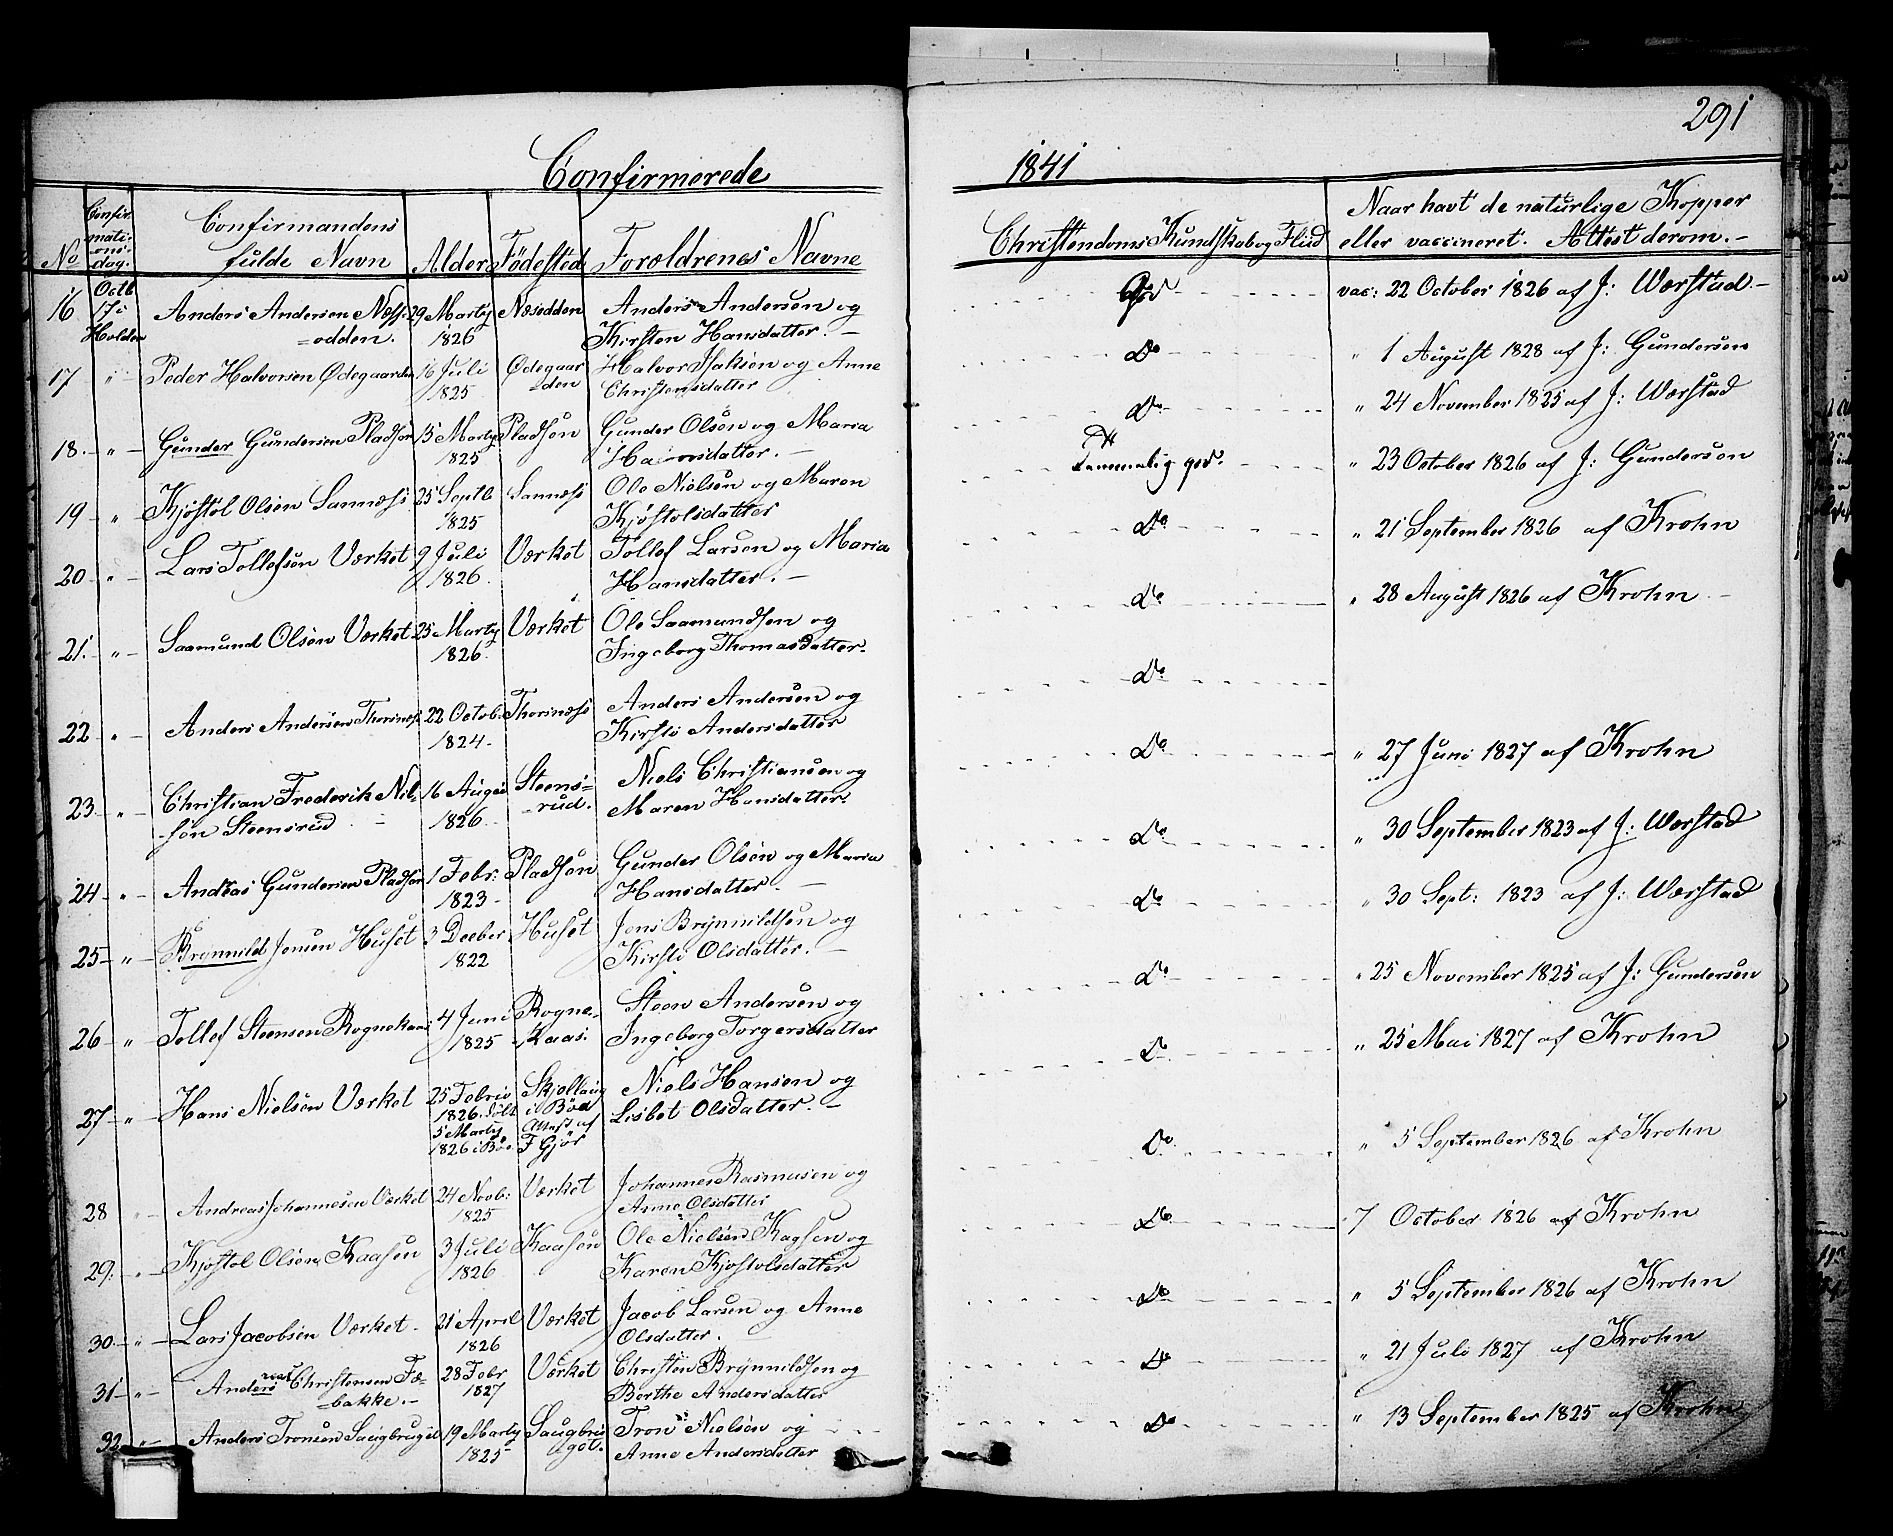 291
Confirmerede
1841
No
Confir-
mati-
ons-
dag.
Confirmandens
fulde Navn
Alder
Fødested
Forældrenes Navne
Christendoms Kundskab og Flid
Naar havt de naturlige Kopper
eller vaccineret. Attest derom.-
16
Octb
17 i
Holden
Anders Andersen Næss-
=odden.
29 Marty
1826
Næsodden
Anders Andersen og
Kirsten Hansdatter. -
God
vac: 22 October 1826 af J: Wærstad.-
17 " Peder Halvorsen Ødegaarden
16 Juli
1825
Ødegaar
=den
Halvor Isaksen og Anne
Christensdatter
do
" 1 August 1828 af J: Gundersen
18. - " - Gunder Gundersen Pladsen
15 Marty
1825
Pladsen
Gunder Olsen og Maria
Hansdatter. -
do
" 24 November 1825 af J: Wærstad
19 - " - Kjøstol Olsen Sannæs
25 Septb
1825
Sannæs
Ole Nielsen og Maren
Kjøstolsdatter
temmelig god.
" 23 October 1826 af J: Gundersen
20 " - Lars Tollefsen Værket
9 Juli
1826
Værket
Tollef Larsen og Maria
Hansdatter. -
do
" 21 September 1826 af Krohn
21. - " - Saamund Olsen Værket
25 Marty
1826.
Værket
Ole Saamundsen og
Ingeborg Thomasdatter.
do
" 28 August 1826 af Krohn
22 - " - Anders Andersen Thorsnæs
22 Octob.
1824.
Thorsnæs
Anders Andersen og
Kirsti Andersdatter
do
23. - " - Christian Frederik Nil-
sen Steensrud
16 August
1826.
Steens=
-rud.
Niels Christiansen og
Maren Hansdatter.
do
" 27 Juni 1827 af Krohn
24 - " - Andreas Gundersen Pladsen
1 Febr:
1823 -
Pladsen
Gunder Olsen og Maria
Hansdatter. -
do
" 30 September 1823 af J: Wærstad
25 - " - Brynnild Jensen Huset
3 Deeber
1822
Huset
Jens Brynnildsen og
Kirsti Olsdatter. -
do
" 30 Sept: 1823 af J: Wærstad
26 - " - Tollef Steensen Rognekaas
4 Juni
1825
Rogne-
kaas.
Steen Andersen og
Ingeborg Torgersdatter
do
" 25 November 1825 af J: Gundersen
27 - " - Hans Nielsen Værket
25 Febriv
1826. døbt
5 Marty
1826 i Bøe
Skjellaug
i Bøe
Attest af
F Gjør
Niels Hansen og
Lisbet Olsdatter. -
do
" 25 Mai 1827 af Krohn
28 " - Andreas Johannesen Værket
24 Novb:
1825
Værket
Johannes Rasmusen og
Anne Olsdatter
do
" 5 September 1826 af Krohn
29. - " - Kjøstol Olsen Kaasen
3 Juli
1826
Kaasen
Ole Nielsen Kaasen og
Karen Kjøstolsdatter
do
7 October 1826 af Krohn
30. - " - Lars Jacobsen Værket -
21 April
1826
Værket
Jacob Larsen og Anne
Olsdatter.
do
" 5 September 1826 af Krohn
31 - " - Anders Christensen Fæ-
=bakke. -
28 Febr
1827
Værket
Christen Brynnildsen og
Berthe Andersdatter
do
" 21 Juli 1827 af Krohn
32 " - Anders Tronsen Saugbruget
19 Marty
1825
Saugbru
get.
Tron Nielsen og
Anne Andersdatter
do
" 13 September 1825 af Krohn